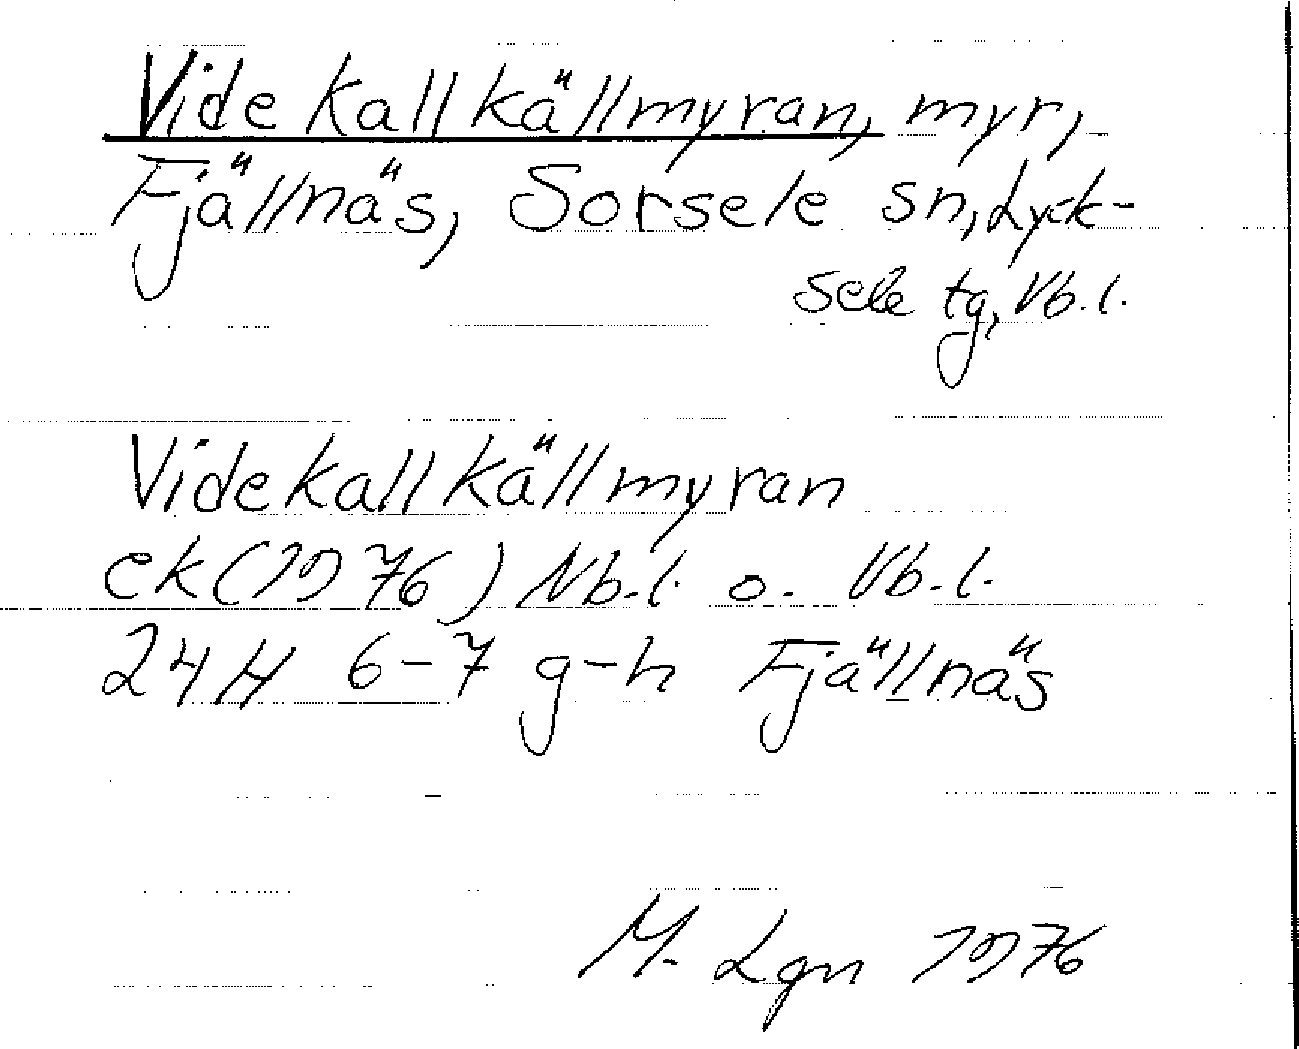 Videkallkällmyran, myr,
Fjällnäs, Sorsele sn, Lyck-
sele tg, Vb.l.
Videkallkällmyran
ek(1976) Nb.l. o. Vb.l.
24H 6-7 g-h Fjällnäs
M. Lgn 1976